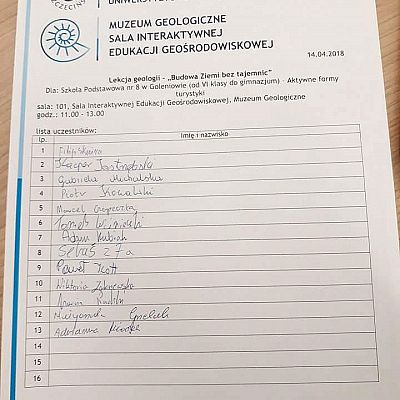 MUZEUM GEOLOGICZNE
SALA INTERAKTYWNEJ
EDUKACJI GEOŚRODOWISKOWEJ
14.04.2018
Lekcja geologii - „Budowa Ziemi bez tajemnic"
Dla: Szkoła Podstawowa nr 8 w Goleniowie (od VI klasy do gimnazjum) - Aktywne formy
turystyki
sala: 101, Sala Interaktywnej Edukacji Geośrodowiskowej, Muzeum Geologiczne
godz.: 11.00 - 13.00
lista uczestników:
lp. Imię i nazwisko
1 Filip
2 Kacper Jastrzębski
3 Gabriela Michalska
4 Piotr Kowalski
5 Marcel
6 Tomek
7 Adam Kubiak
8 Sebuś z 7a
9 Paweł Kott
10 Wiktoria
11
12
13 Adrianna
14
15
16